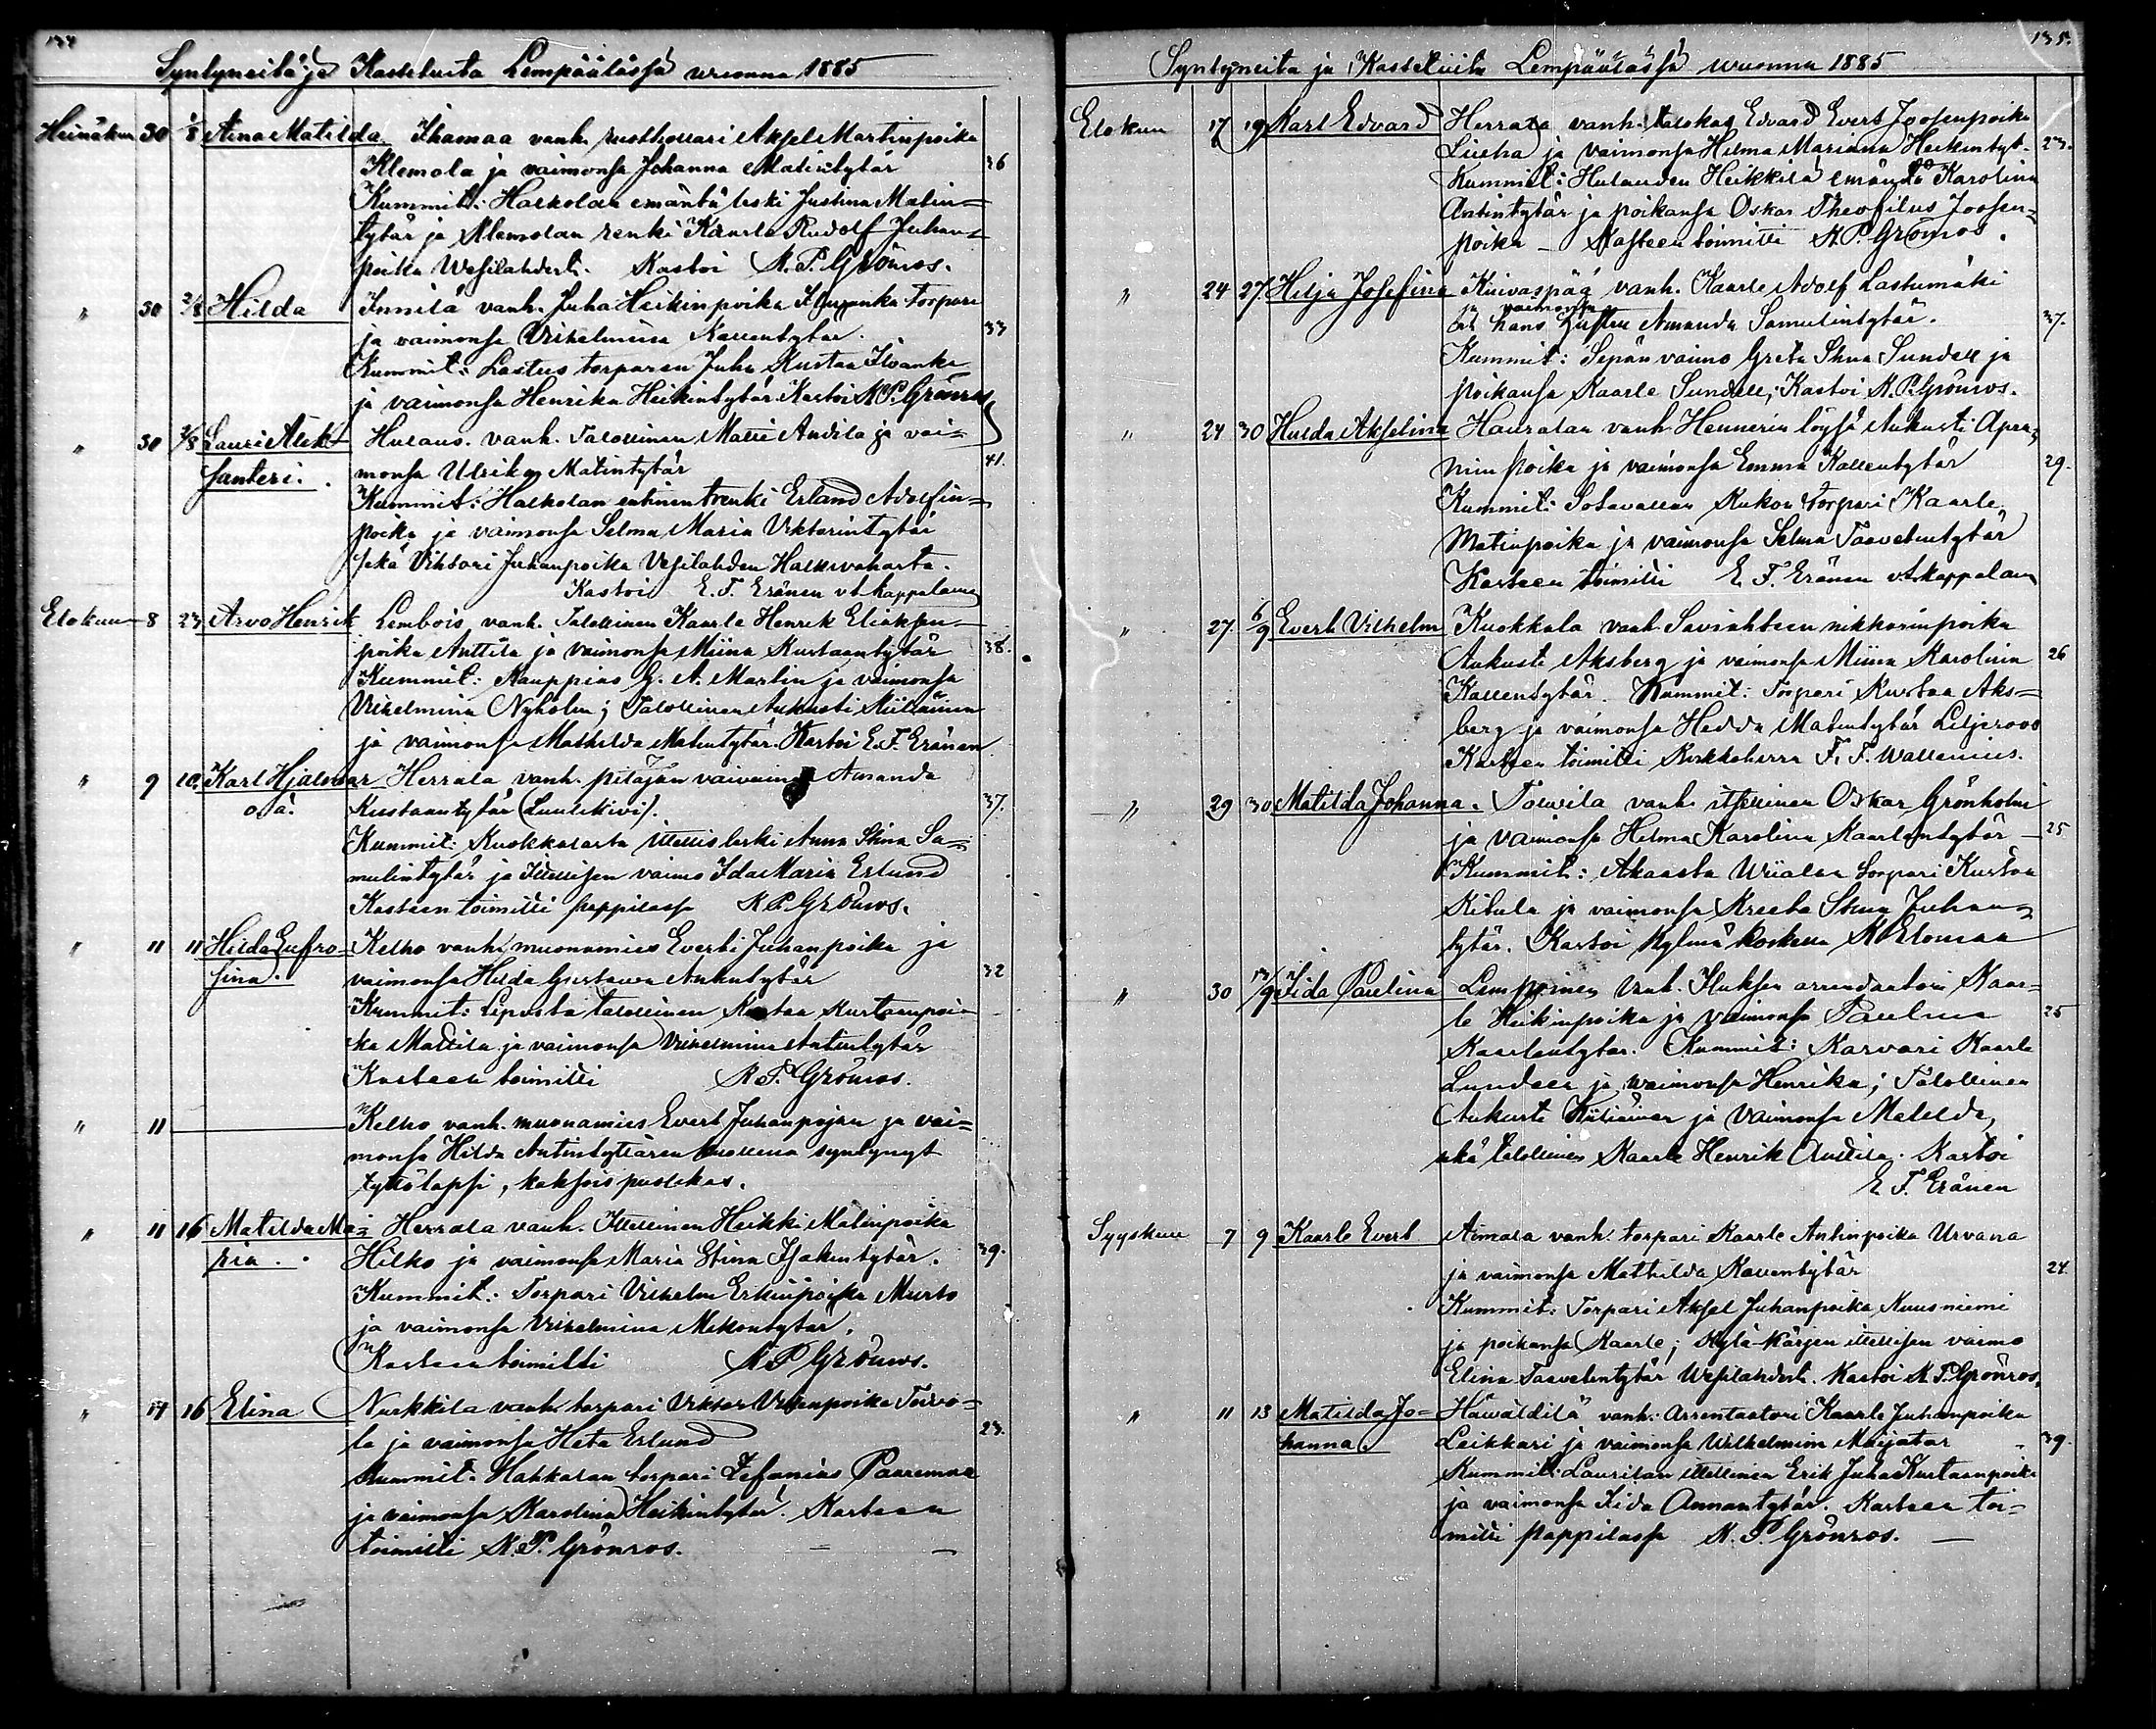 134
Syntyneitä ja Kastetuita Lempäälässä wuonna 1885
Heinäkuu 30 1/8 Aina Matilda Ihamaa vanh. rusthollari Aksel Martinpoika
Klemola ja vaimonsa Johanna Matintytär 36
Kummit: Halkolan emäntä leski Justina Matin=
tytär ja Klemolan renki Kaarle Rudolf Juhan=
poika Wesilahdesta. Kastoi K. P. Grönros.
" 30 2/8 Hilda Innilä vanh. Juha Heikinpoika torpari
ja vaimonsa Vilhelmiina Kallentytär. 33
Kummit: Lastus torparin Juha Kustaa Ilvanka
ja vaimonsa Henrika Heikintytär Kastoi K. P. Grönros
" 30 2/8 Lauri Alek- Hulaus. vanh. Talollinen Matti Andila ja vai=
santeri. monsa Ulrika Matintytär 41.
Kummit: Halkolan entinen renki Erland Adolfin=
poika ja vaimonsa Selma Maria Viktorintytär
sekä Vihtori Juhanpoika Vesilahden
Kastoi E. F. Eränen vt. kappalainen
Elokuu 8 23 Arvo Henrik Lembois vanh. Talollinen Kaarle Henrik Eliaksen-
poika Anttila ja vaimonsa Miina Kustaantytär 38.
Kummit: Kauppias G. A. Martin ja vaimonsa
Vilhelmina Nyholm; Talollinen Aukusti Kiiliäinen
ja vaimonsa Mathilda Matintytär. Kastoi E. F. Eränen
" 9 10. Karl Hjalmar Herrala vanh. pitäjän vaivainen Amanda
o.ä. Kustaantytär (Luulikivi). 37.
Kummit: Kuokkalasta itsellis leski Anna Stina Sa=
mulintytär ja Itsellisen vaimo Ida Maria Erlund
Kasteen toimitti pappilassa K. P. Grönros.
" 11 11 Hilda Eufro- Kelho vanh. muonamies Everti Juhanpoika ja
sina. vaimonsa Hilda Gustawa Antintytär 32
Kummit: Lipusta talollinen Kustaa Kustaanpoi-
ka Mattila ja vaimonsa Vilhelmina Antintytär
Kasteen toimitti K. P. Grönros.
" 11 Kelho vanh. muonamies Evert Juhanpojan ja vai=
monsa Hilda Antintyttären kuollena syntynyt
tyttölapsi, kaksoispuolikas.
" 11 16 Matilda Ma= Herrala vanh. Itsellinen Heikki Matinpoika
ria. Hilko ja vaimonsa Maria Stina Isakintytär. 39.
Kummit: Torpari Vilhelm Erkinpoika Murto
ja vaimonsa Vilhelmina Mikontytär.
Kasteen toimitti K. P. Grönros.
" 14 16 Elina Nurkkila vanh. torpari Viktor Villenpoika Toivo=
la ja vaimonsa Heta Erlund 23.
Kummit. Hahkalan torpari Zefanias Paurenmaa
ja vaimonsa Karolina Heikintytär. Kasteen
toimitti K. P. Grönros.
135.
Syntyneitä ja Kastetuita Lempäälässä wuonna 1885
Elokuu 17 19 Karl Edvard Herrala vanh. talokas Edvard Evert Joosenpoika
ja vaimonsa Hilma Mariana Heikintyt. 23.
Kummit: Hulauden Heikkilä emäntä Karolina
Antintytär ja poikansa Oskar Theofilus Joosen-
poika - Kasteen toimitti K. P. Grönros.
" 24 27. Hilja Josefina Kuivaspää vanh. Kaarle Adolf Lastumäki
ja vaimonsa
och hans hustru Amanda Samulintytär. 37.
Kummit: Sepän vaimo Greta Stina Sundell ja
poikansa Kaarle Sundell; Kastoi K. P. Grönros.
" 24 30 Hulda Akselina Hauralan vanh. Hennerin löysä Aukusti
poika ja vaimonsa Emma Kallentytär 29.
Kummit: Sotavallan Kukon torpari Kaarle
Matinpoika ja vaimonsa Selma Taavetintytär
Kasteen toimitti E. F. Eränen vt. kappalain
" 27. 6/9 Evert Vilhelm Kuokkala vanh. Savisahteen nikkarinpoika
Aukusti Aksberg ja vaimonsa Miina Karolina 26
Kallentytär. Kummit: Torpari Kustaa Aks=
berg ja vaimonsa Hedda Matintytär Liljeroos
Kasteen toimitti Kirkkoherra F. F. Wallenius.
" 29 30 Matilda Johanna. Toivila vanh. itsellinen Oskar Grönholm
ja vaimonsa Hilma Karolina Kaarlentytär 25
Kummit: Akaasta Wiialan torpari Kustaa
Kitula ja vaimonsa Kreeta Stina Juhan-
tytär. Kastoi Kylmäkoskella K Elomaa
" 30 13/9 Iida Paulina Lempoinen vanh. arrendaatori Kaar=
le Heikinpoika ja vaimonsa Paulina 25
Kaarlentytär. Kummit: Karvari Kaarle
Lundeen ja vaimonsa Henrika; Talollinen
Aukusti Kiiliäinen ja vaimonsa Matilda,
sekä talollinen Kaarle Henrik Anttila. Kastoi
E. F. Eränen
Syyskuu 7 9 Kaarle Evert Aimala vanh. torpari Kaarle Antinpoika Urvana
ja vaimonsa Mathilda Kallentytär 24.
Kummit: Torpari Aksel Juhanpoika Kuusniemi
ja poikansa Kaarle; Kylä-Kärjen itsellisen vaimo
Elina Taavetintytär Wesilahdest. Kastoi K. P. Grönros.
" 11 13 Matilda Jo= Häwättilä vanh. Arrentaatori Kaarle Juhanpoika
hanna. Leikkari ja vaimonsa Wilhelmiina 39.
Kummit: Laurilan itsellinen Erik Juha Kustaanpoika
ja vaimonsa Iida Amantytär. Kasteen toi=
mitti pappilassa K. P. Grönros.